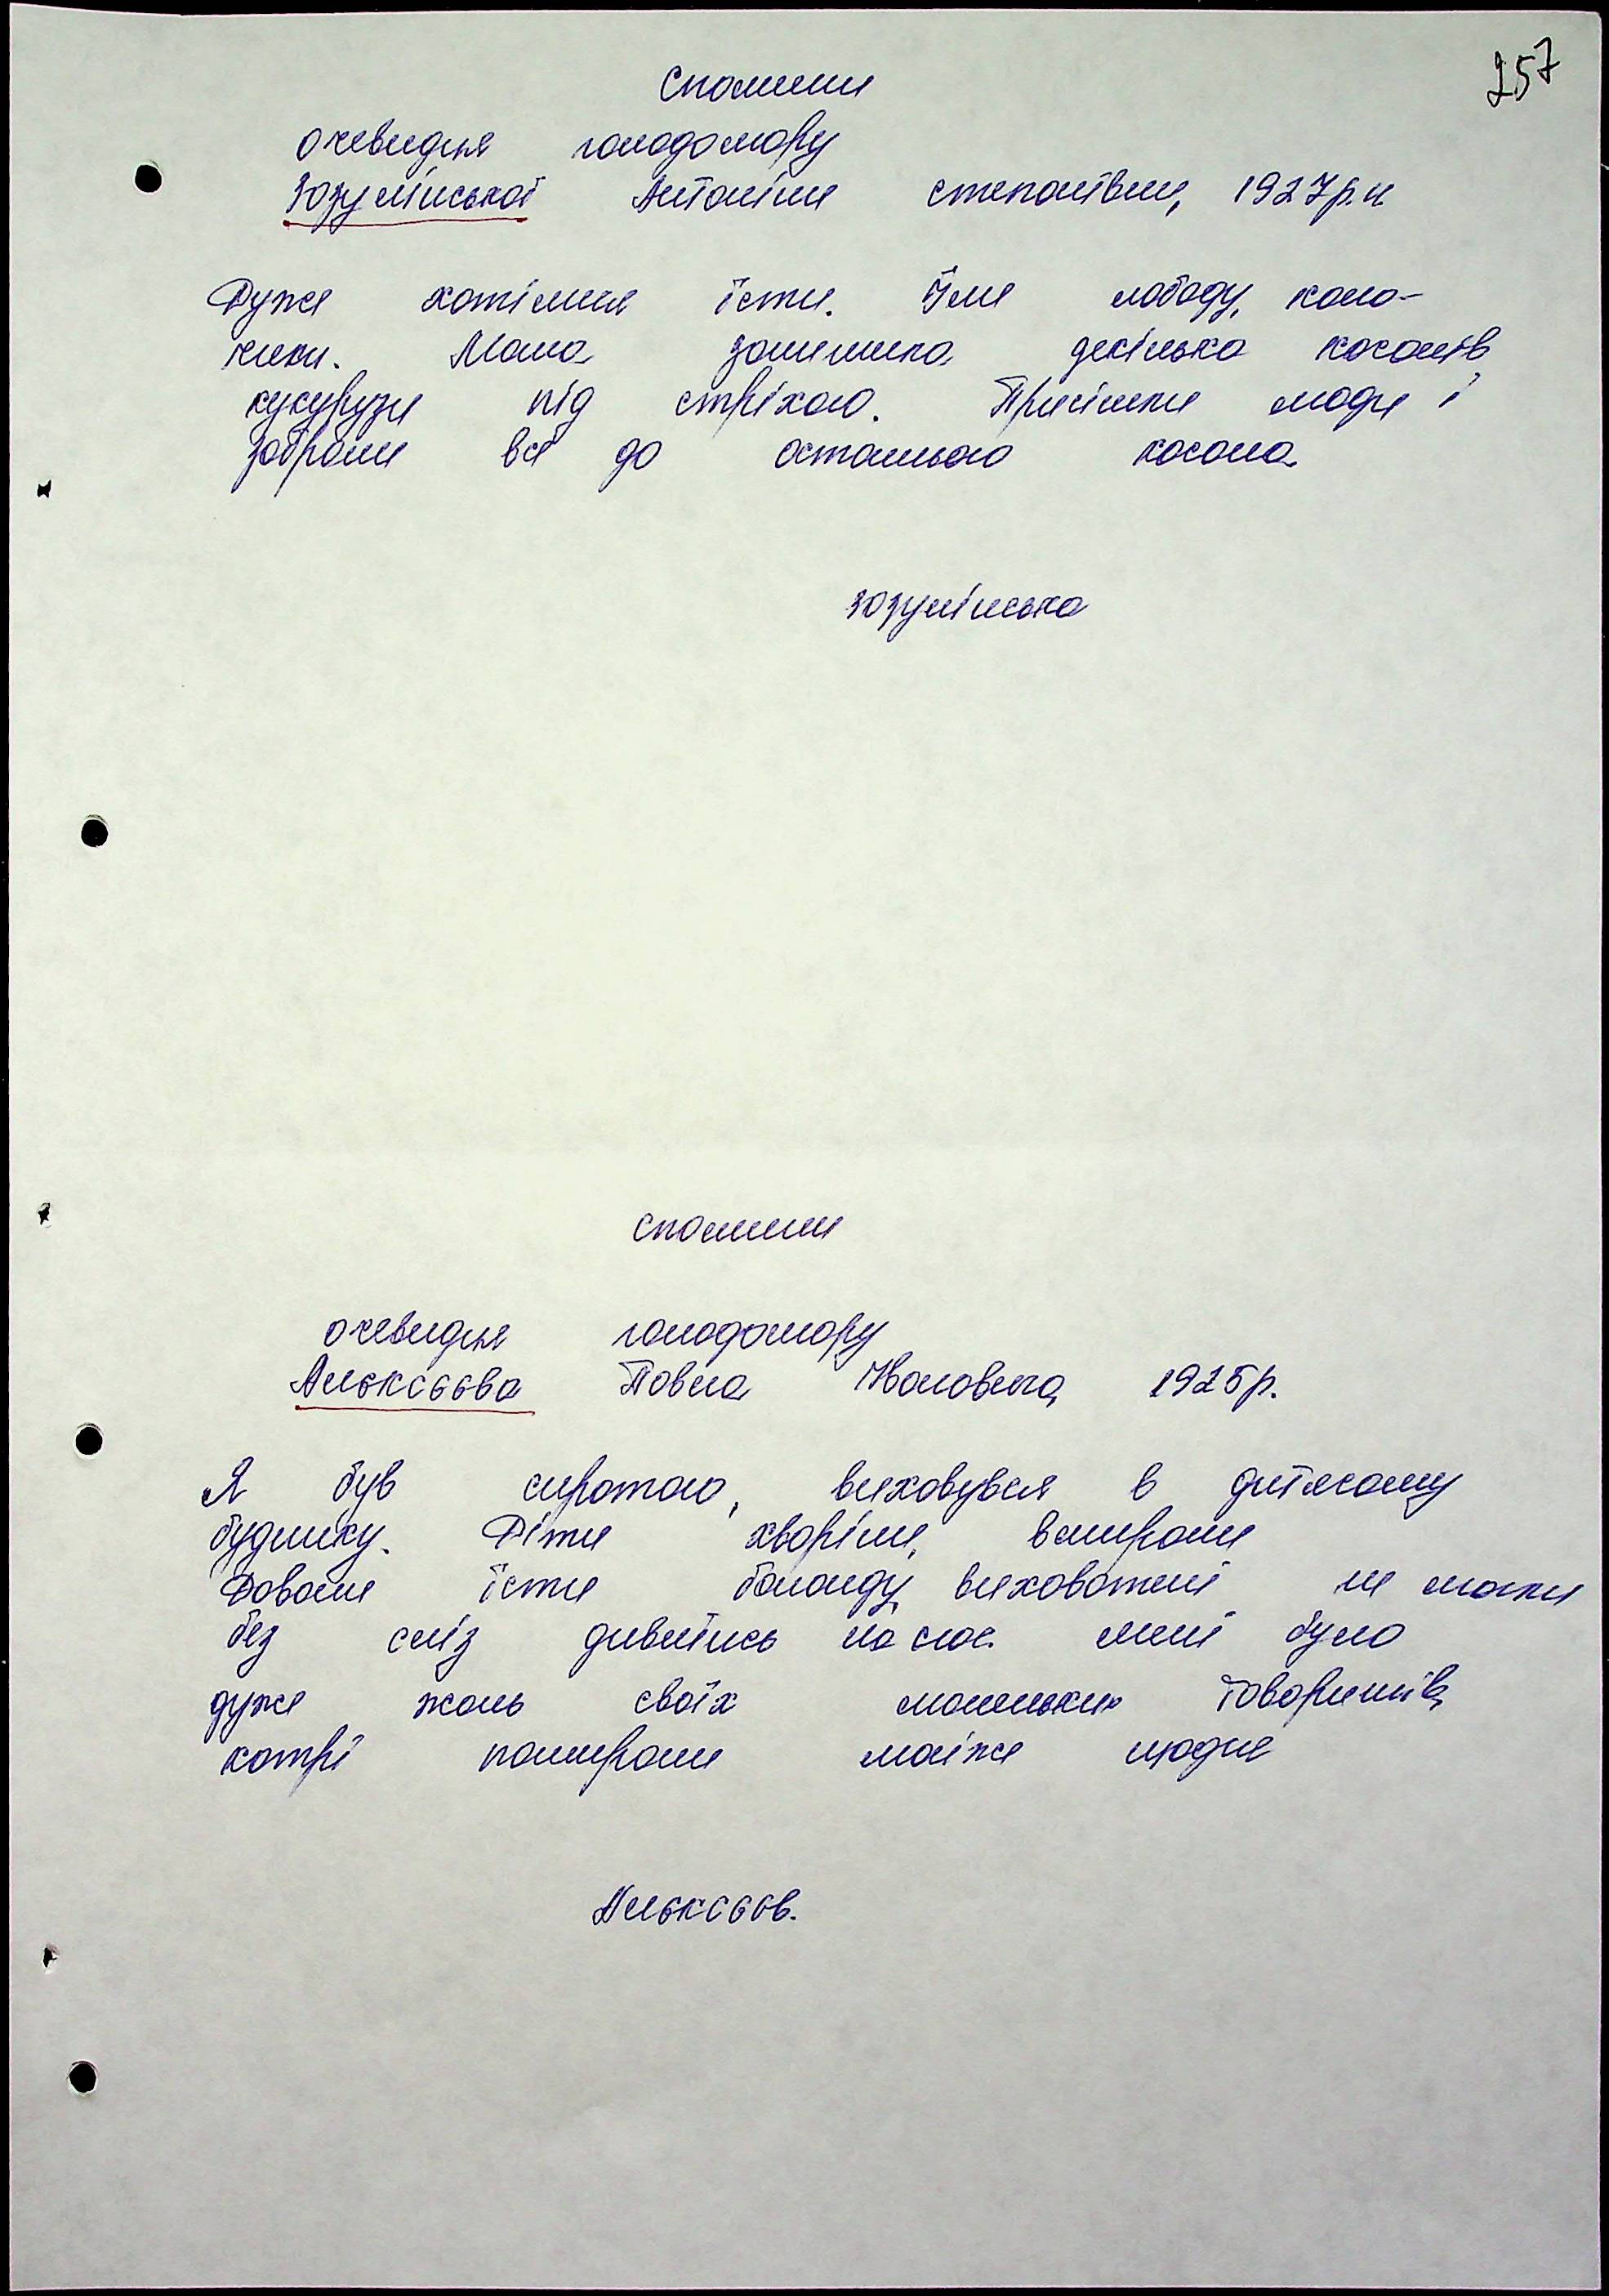 257
Спомини
очевидця голодомору
Зозулінської Антоніни Степанівни, 1927р.н.
Дуже хотілися їсти. Їли лободу, кала-
чики. Мама залишила декілька качанів
кукурузи під стріхою. Приїшли люди і
забрали все до останнього качана.
Зозулінська
Спомини
очевидця голодомору
Алєксєєва Павла Івановича, 1925р.
Я був сиротою, виховувся в дитячому
будинку. Діти хворіли, вмирали
Давали їсти баланду, вихователі не могли
без сліз дивитись на нас. мені було
дуже жаль своїх маленьких товаришів,
котрі помирали майже щодня
Алєксєєв.